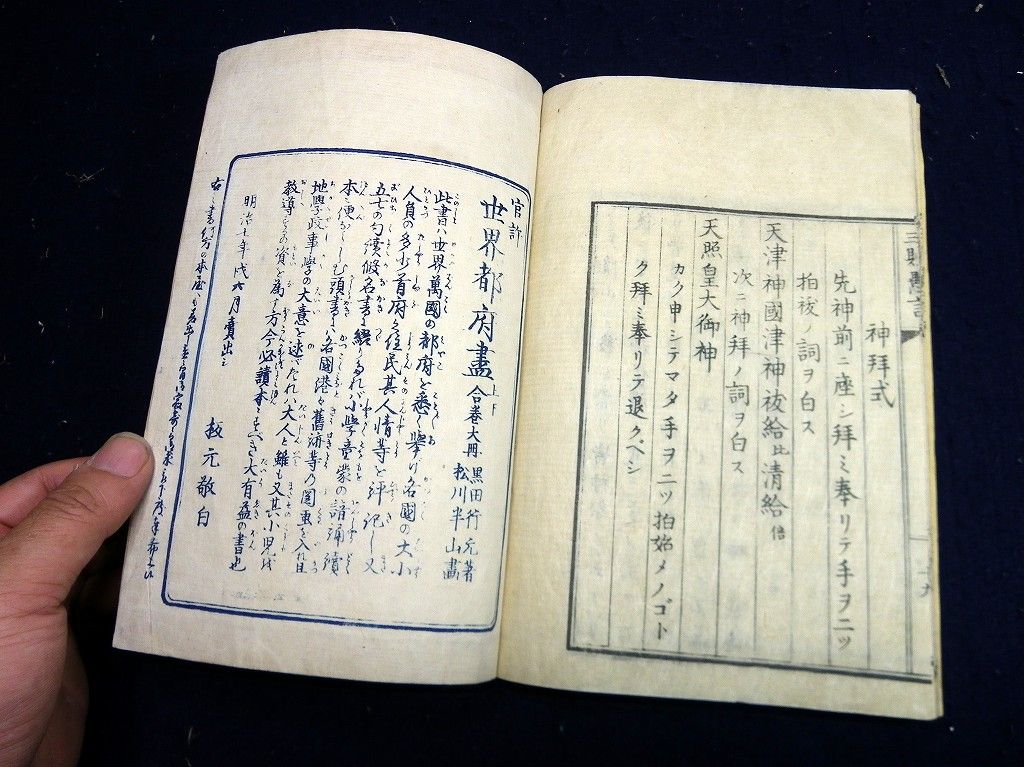 神拜式
先神前ニ座シ拜ミ奉リテ手ヲニッ
拍祓ノ詞ヲ白ス
天津神國津神祓給比清給倍
次ニ神拜ノ詞ヲ白ス
天照皇大御神
カク申シテマタ手ヲニッ拍始メノゴト
ク拜ミ奉リテ退クベシ
官許
世界都府畫 上下 合巻大冊 黒田行元著
松川半山畫
此書ハ世界萬國の都府を悉く挙け各國の大小
人員の多少首府の住民其人情等を評記し又
五七の句續假名書に綴りたれバ小學童蒙の諳誦續
本に便ならしむ頭書にハ各國港々舊跡等の圖畫を入れ且
地學政事學の大意を述べたれハ大人と雖も又其小児を
教導するの資と為す方今必讀本ともいふべき大有益の書也
明治七年戌六月賣出し
板元敬白